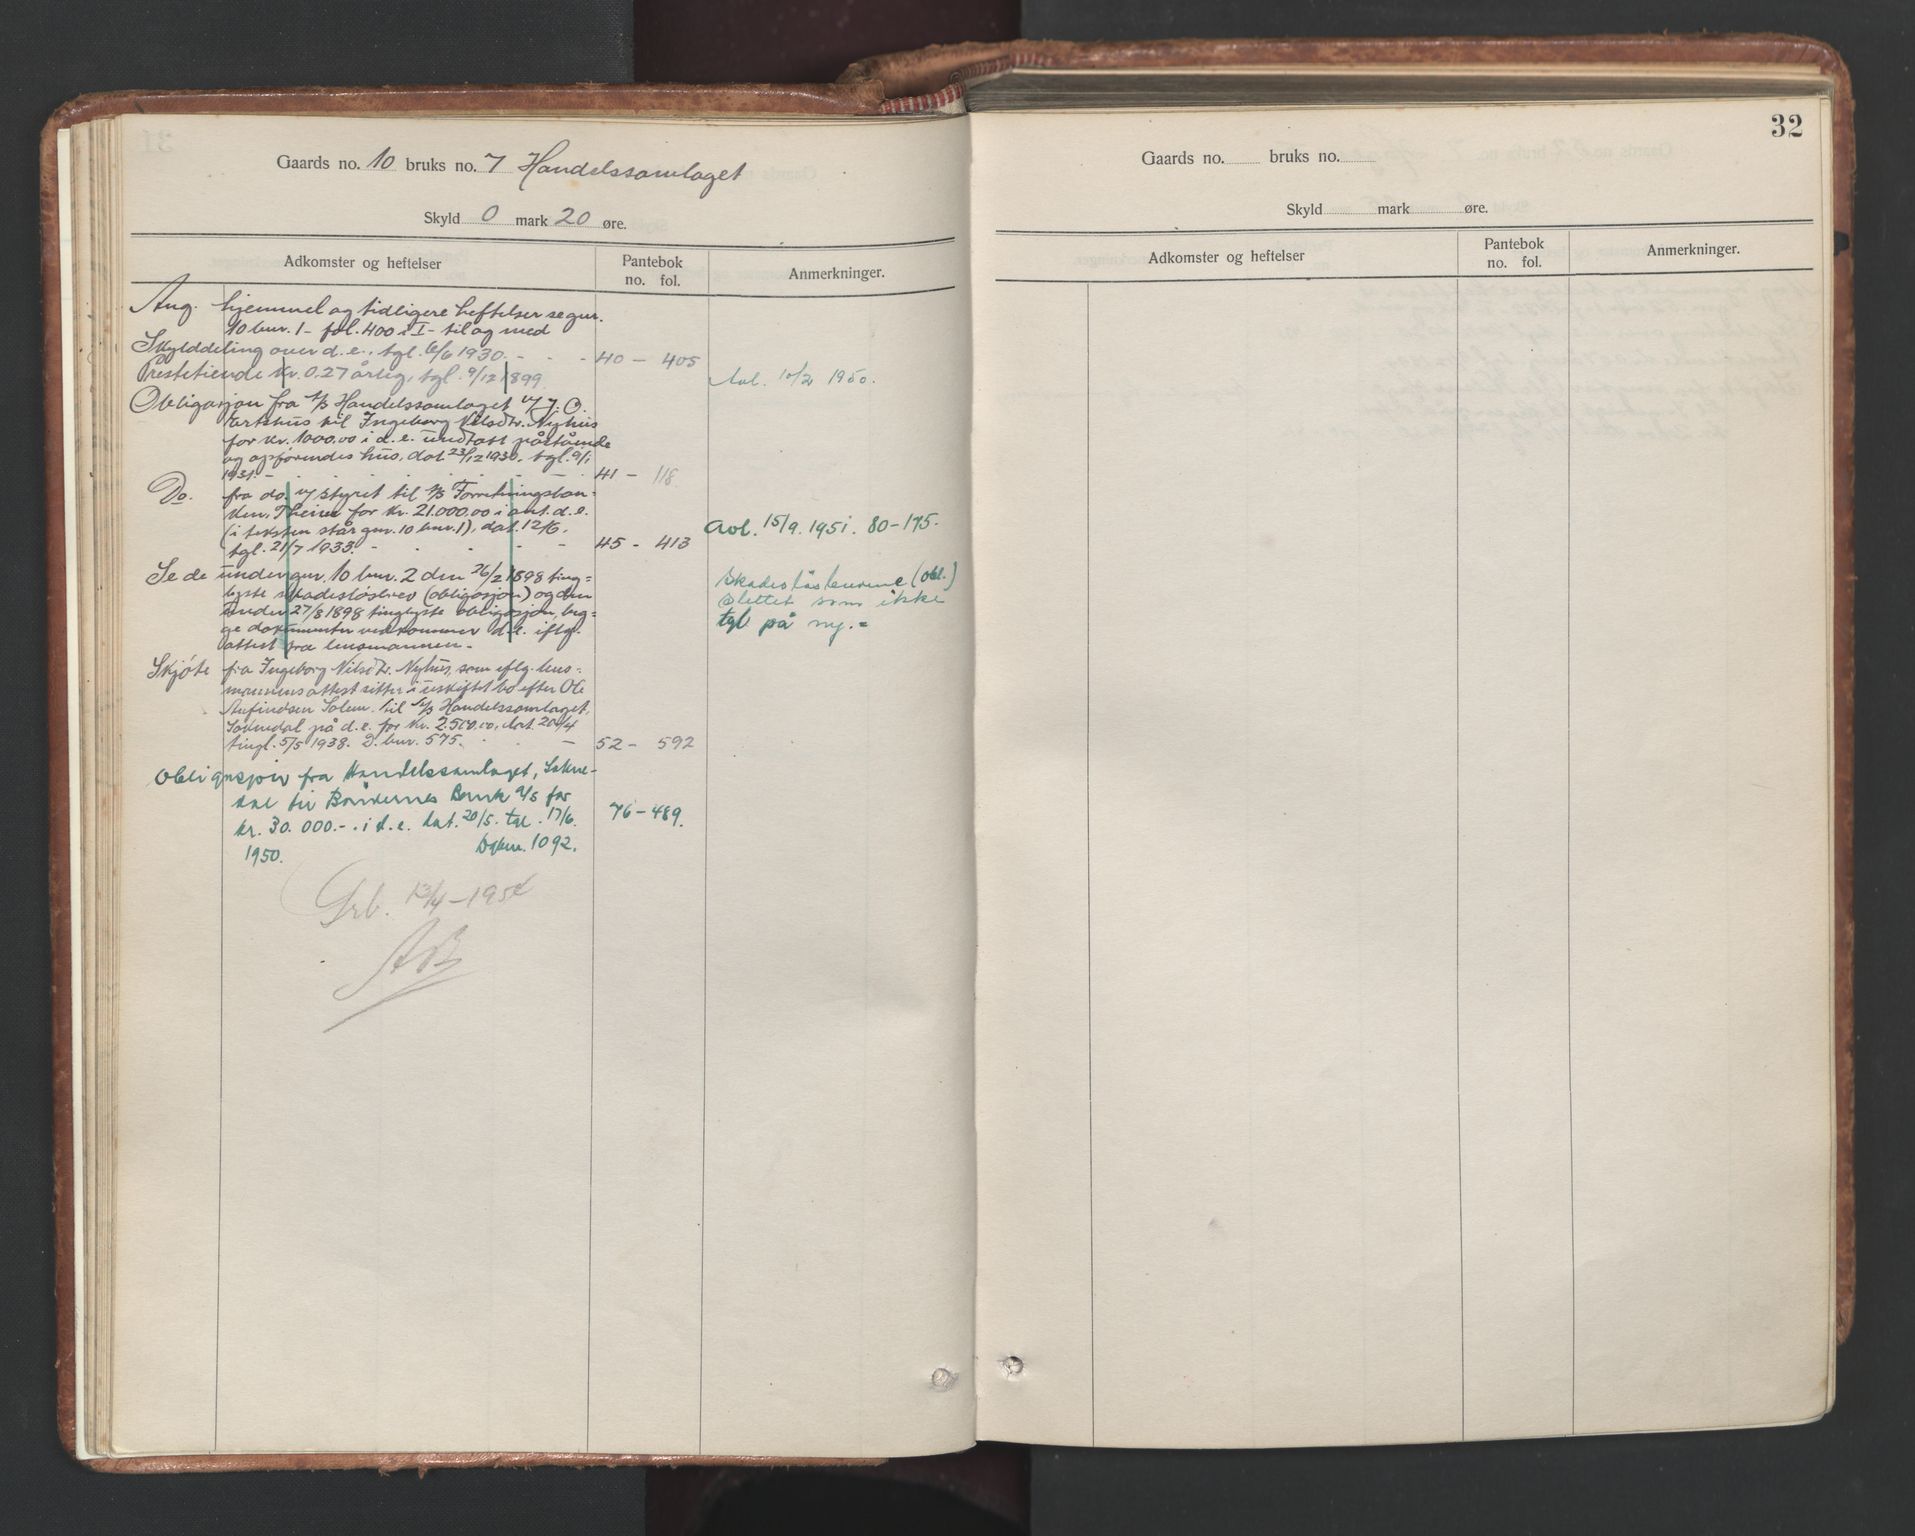 Gaards no. 10 bruks no. 7 Handelssamlaget
Skyld 0 mark 20 øre.
Adkomster og heftelser
Pantebok
no. fol.
Anmerkninger.
Ang. hjemmel og tidligere heftelser se gnr.
10 bnr. 1 - fol. 400 i I - til og med
Skylddeling over d.e., tgl. 6/6 1930. - - - 40 - 405
Prestetiende kr. 0.27 årlig, tgl. 9/12 1899
Avl. 10/2 1950.
Obligasjon fra A/S Handelssamlaget v/ J. O.
til Ingeborg Nilsdtr. Nyhus
for kr. 1000.00 i d.e. undtatt påstående
og opførendes hus, dat. 23/12 1930, tgl. 9/1
1931. - 41 - 118
Do. fra do. v/ styret til A/S Forretningsban-
ken, for kr. 21.000.00 i ant. d.e.
(i teksten står gnr. 10 bnr. 1), dat. 12/6,
tgl. 21/7 1933. - - - 45 - 413
Avl. 15/9. 1951. 80-175.
Se de under gnr. 10 bnr. 2 den 26/2 1898 ting=
lyste skadesløsbrev (obligasjon) og den
under 27/8 1898 tinglyste obligasjon, beg-
ge dokumenter vedkommer d.e. iflg.
attest fra lensmannen. -
Skadesløsbrevene (obl.)
slettet som ikke
tgl på ny. =
Skjøte fra Ingeborg Nilsdtr. Nyhus, som iflg. lens=
mannens attest sitter i uskiftet bo efter Ole
Arfindsen Solem til A/S Handelssamlaget,
Soknedal på d.e. for kr. 2.500.00, dat. 20/4
tingl. 5/5 1938. D. bnr. 575. - - 52 - 592
Obligasjon fra Handelssamlaget, Sokne-
dal til Bøndernes Bank A/S for
kr. 30.000.-. i d.e. dat. 20/5. tgl. 17/6.
1950. Dgbnr. 1092.
76 - 489.
Grb. 13/4 - 1954
AB
32
Gaards no. bruks no.
Skyld mark øre.
Adkomster og heftelser
Pantebok
no. fol.
Anmerkninger.